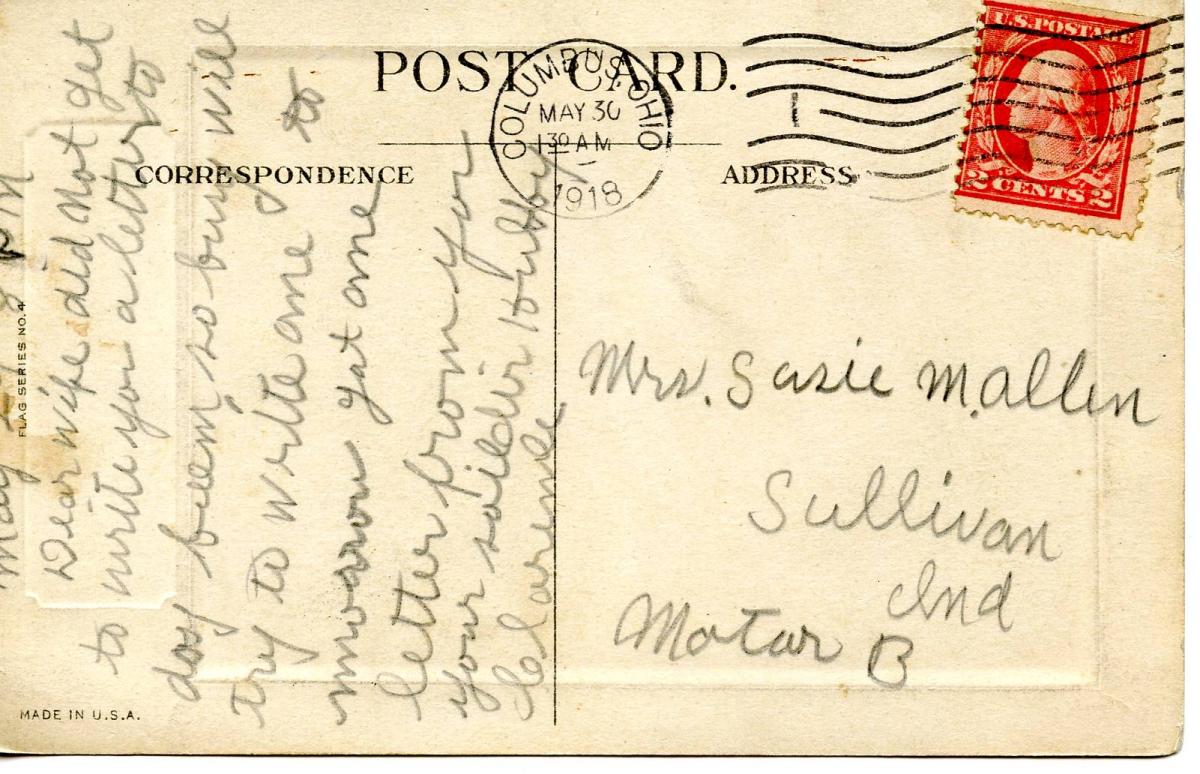 POST CARD.
COLUMBUS, OHIO
MAY 30
130 AM
1918
U.S. POSTAGE
2 CENTS 2
CORRESPONDENCE
ADDRESS
May 8 PM
Dear wife did not get
to write you a letter to
day beem so busy will
try to write one to
morrow gat one
letter from you
your soilder Hubby
Clarence
Mrs. Susie M. Allen
Sullivan
Ind
Motar B
FLAG SERIES NO. 4
MADE IN U.S.A.